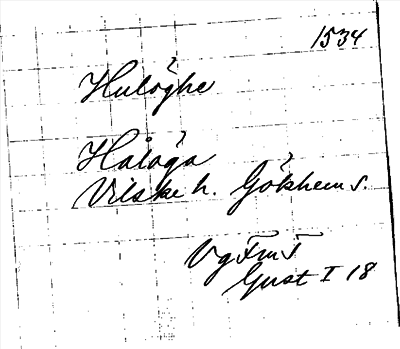 1534
Hulöghe
Hålöga
Vilske h. Gökhem s.
Vg Fmt
Gust I 18